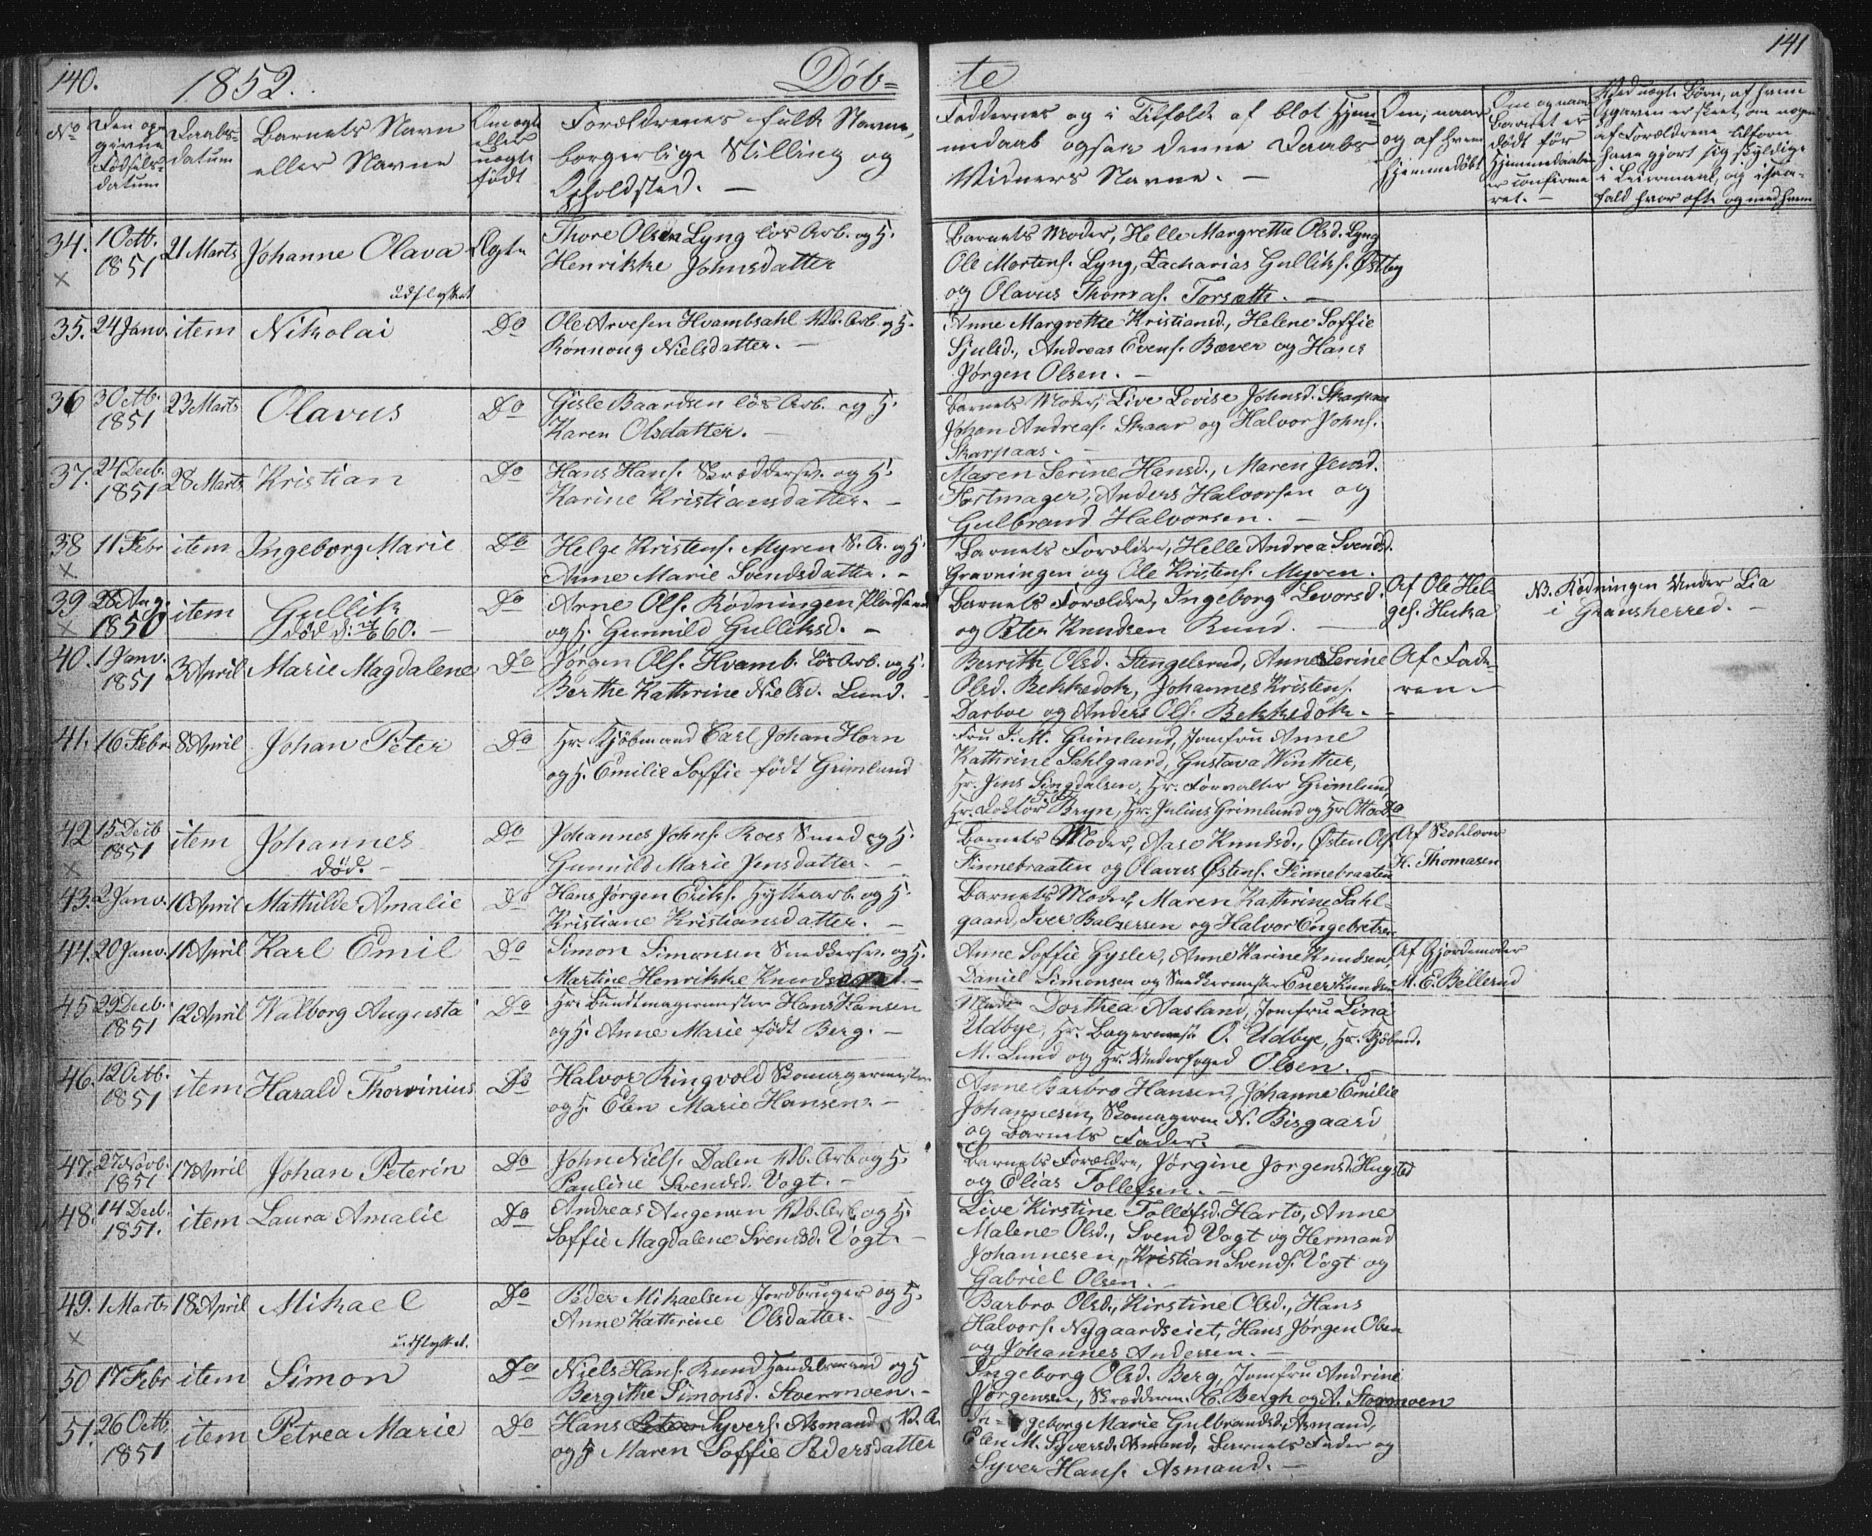 140.
1852.
Döb=
te
141
No
Den opgivne Födselsdatum
Daabsdatum
Barnets Navn eller Navne
Om ægte eller uægte födt
Forældrenes fulde Navne, borgerlige Stilling og Opholdsted. —
Faddernes og i Tilfælde af blot Hjemmedaab ogsaa denne Daabs Vidners Navne. —
Om, naar og af hvem hjemmedöbt
Om og naar Barnet er dödt för Hjemmedaaben er confirmeret. —
Ved uægte Börn, af hvem Opgaven er skeet, om nogen af Forældrene tilforn have gjort sig skyldige i Leiermaal, og i saafald hvor ofte og med hvem
34. 1 Octb. 1851 21 Marts Johanne Olava Ægte
×
udflyttet
Thore Olsen Lyng lös Arb. og H.
Henrikke Johnsdatter
Barnets Moder, Helle Margrethe Olsd. Lyng
Ole Mortens. Lyng, Zacharias Gulliks. Østby
og Olavus Thomas. Torsæth. —
35. 24 Janv. item Nikolai Do
Ole Arvesen Hvambsahl Vb. Arb. og H.
Rönnoug Nielsdatter. —
Anne Margrethe Kristiansd., Helene Soffie
Sjulsd., Andreas Evens. Bæver og Hans
Jörgen Olsen. —
36 3 Octb. 1851 23 Marts Olavus Do
Gisle Baardsen lös Arb. og H.
Karen Olsdatter. —
Barnets Moder, Live Lovise Johnsd. Skarpaas
Johan Andreas. Skaar og Halvor Johns.
Skarpaas. —
37. 24 Decb. 1851 28 Marts Kristian Do
Hans Hans. Skræddersv. og H.
Karine Kristiansdatter. —
Maren Serine Hansd., Maren Jensd.
Hortmager, Anders Halvorsen og
Gulbrand Halvorsen. —
38 11 Febr item Ingeborg Marie Do
×
Helge Kristens. Myren S. A. og H.
Anne Marie Svendsdatter. —
Barnets Forældre, Helle Andrea Svendsd.
Gravningen og Ole Kristens. Myren.
39 28 Aug. 1850 item Gullik Do
×
död d. 60. —
Arne Ols. Rödningen Pladsmand
og H. Gunnild Gulliksd. —
Barnets Forældre, Ingeborg Levorsd.
og Peter Knudsen Rund. —
Af Ole Helges. Huka
N. Rödningen under Lia
i Gransherred. —
40. 1 Janv. 1851 3 April Marie Magdalene Do
Jörgen Ols. Hvamb. lös Arb. og H.
Berthe Kathrine Nielsd. Lund. —
Berrith Olsd. Stengelsrud, Anne Serine
Olsd. Bekkedok, Johannes Kristens.
Darboe og Anders Ols. Bekkedok. —
Af Faderen. —
41. 16 Febr 8 April Johan Peter Do
Hr. Kjöbmand Carl Johan Horn
og H. Emilie Soffie födt Grimlund
Fru J. M. Grimlund, Jomfru Anne
Kathrine Sahlgaard, Gustava Winther,
Hr. Jens Singdalsen, Hr. Forvalter Grimlund
Hr. Doktor Bryn, Hr. Julius Grimlund og Hr. Otto
42 15 Decb 1851 item Johannes Do
×
död. —
Johannes Johns. Roes Smed og H.
Gunnild Marie Jensdatter. —
Barnets Moder, Aase Knudsd., Østen Ols.
Finnebraaten og Olavus Østens. Finnebraaten
Af Skolelærer
H. Thomasen
43. 2 Janv. 10 April Mathilde Amalie Do
Hans Jörgen Eriks. Hyttearb. og H.
Kristiane Kristiansdatter. —
Barnets Moder, Maren Kathrine Sahlgaard, Iver Balzersen og Halvor Engebretsen
44. 20 Janv. 11 April Karl Emil Do
Simon Simonsen Snedkersv. og H.
Martine Henrikke Knudsen. —
Anne Soffie Gysler, Anne Karine Knudsen,
Daniel Simonsen og Snedkermester Ener Knudsen
Af Gjordemoder
M. E. Bellerud
45 29 Decb. 1851 12 April Valborg Augusta Do
Hr. Bundtmagermester Hans Hansen
og H. Anne Marie födt Berg. —
Dorthea Aasland, Jomfru Lina
Udbye, Hr. Bagermest. O. Udbye, Hr. Kjöbmd.
M. Lund og Hr. Underfoged Olsen. —
46. 12 Octb. 1851 item Harald Thorvinius Do
Halvor Ringvold Skomagermester
og H. Elen Marie Hansen. —
Anne Barbro Hansen, Johanne Emilie
Johannesen, Skomagerm N. Bisgaard
og Barnets Fader. —
47. 27 Novb. 1851 17 April Johan Peterin Do
John Niels. Dalen Vb. Arb og H.
Pauline Svendsd. Vogt. —
Barnets Forældre, Jörgine Jorgensd. Hugsted
og Elias Tollefsen. —
48. 14 Decb. 1851. item Laura Amalie Do
Andreas Augensen Vb. Arb. og H.
Soffie Magdalene Svendsd. Vogt. —
Live Kirstine Tollefsd. Harto, Anne
Malene Olsd., Svend Vogt og Hermand
Johannesen, Kristian Svends. Vogt og
Gabriel Olsen. —
49. 1 Marts 18 April Mikael Do
×
udflyttet.
Peder Mikaelsen Jordbruger og H.
Anne Kathrine Olsdatter. —
Barbro Olsd., Kirstine Olsd., Hans
Halvors. Nygaardseiet, Hans Jörgen Olsen
og Johannes Andersen. —
50 17 Febr item Simon Do
Niels Hans. Rund Handelsmand og H
Bergithe Simonsd. Stoermoen. —
Ingeborg Olsd. Berg, Jomfru Andrine
Jörgensen, Skrædderm. C. Bergh og A. Stormoen
51. 26 Octb. 1851 item Petrea Marie Do
Hans Syvers. Asmand V. A.
og H Maren Soffie Pedersdatter
Ingeborg Marie Gulbrandsd. Asmand,
Elen M. Syversd. Asmand, Barnets Fader og
Syver Hans. Asmand. —